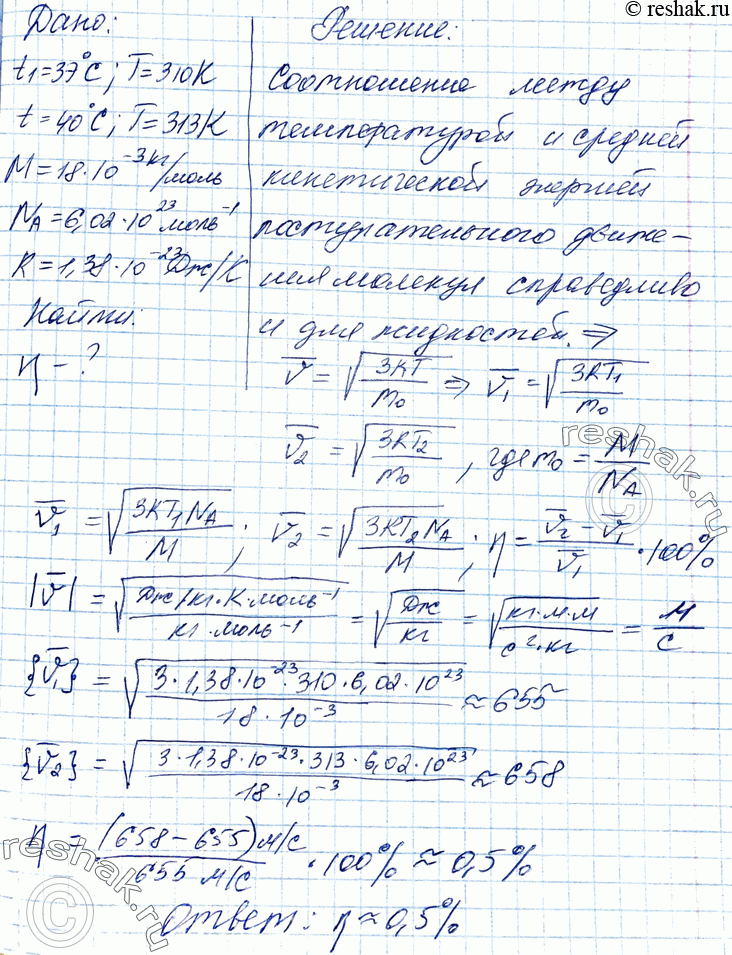 © reshak.ru
Дано:
t₁=37°C; T=310K
t=40°C; T=313K
M=18·10⁻³кг/моль
N_A=6,02·10²³моль⁻¹
k=1,38·10⁻²³Дж/К
Найти:
η-?
Решение:
Соотношение между
температурой и средней
кинетической энергией
поступательного движе-
ния молекул справедливо
и для жидкостей. ⇒
v̅=√(3kT/m₀) ⇒ v̅₁=√(3kT₁/m₀)
v̅₂=√(3kT₂/m₀), где m₀=M/N_A
v̅₁=√(3kT₁N_A/M); v̅₂=√(3kT₂N_A/M); η=(v̅₂-v̅₁)/v̅₁·100%
|v̅|=√(Дж/кг·К·моль⁻¹/кг·моль⁻¹)=√(Дж/кг)=√(кг·м·м/с²·кг)=м/с
{v̅₁}=√(3·1,38·10⁻²³·310·6,02·10²³/18·10⁻³)≈655
{v̅₂}=√(3·1,38·10⁻²³·313·6,02·10²³/18·10⁻³)≈658
η=(658-655)м/с/655 м/с·100%≈0,5%
Ответ: η≈0,5%
reshak.ru
©
reshak.ru
©